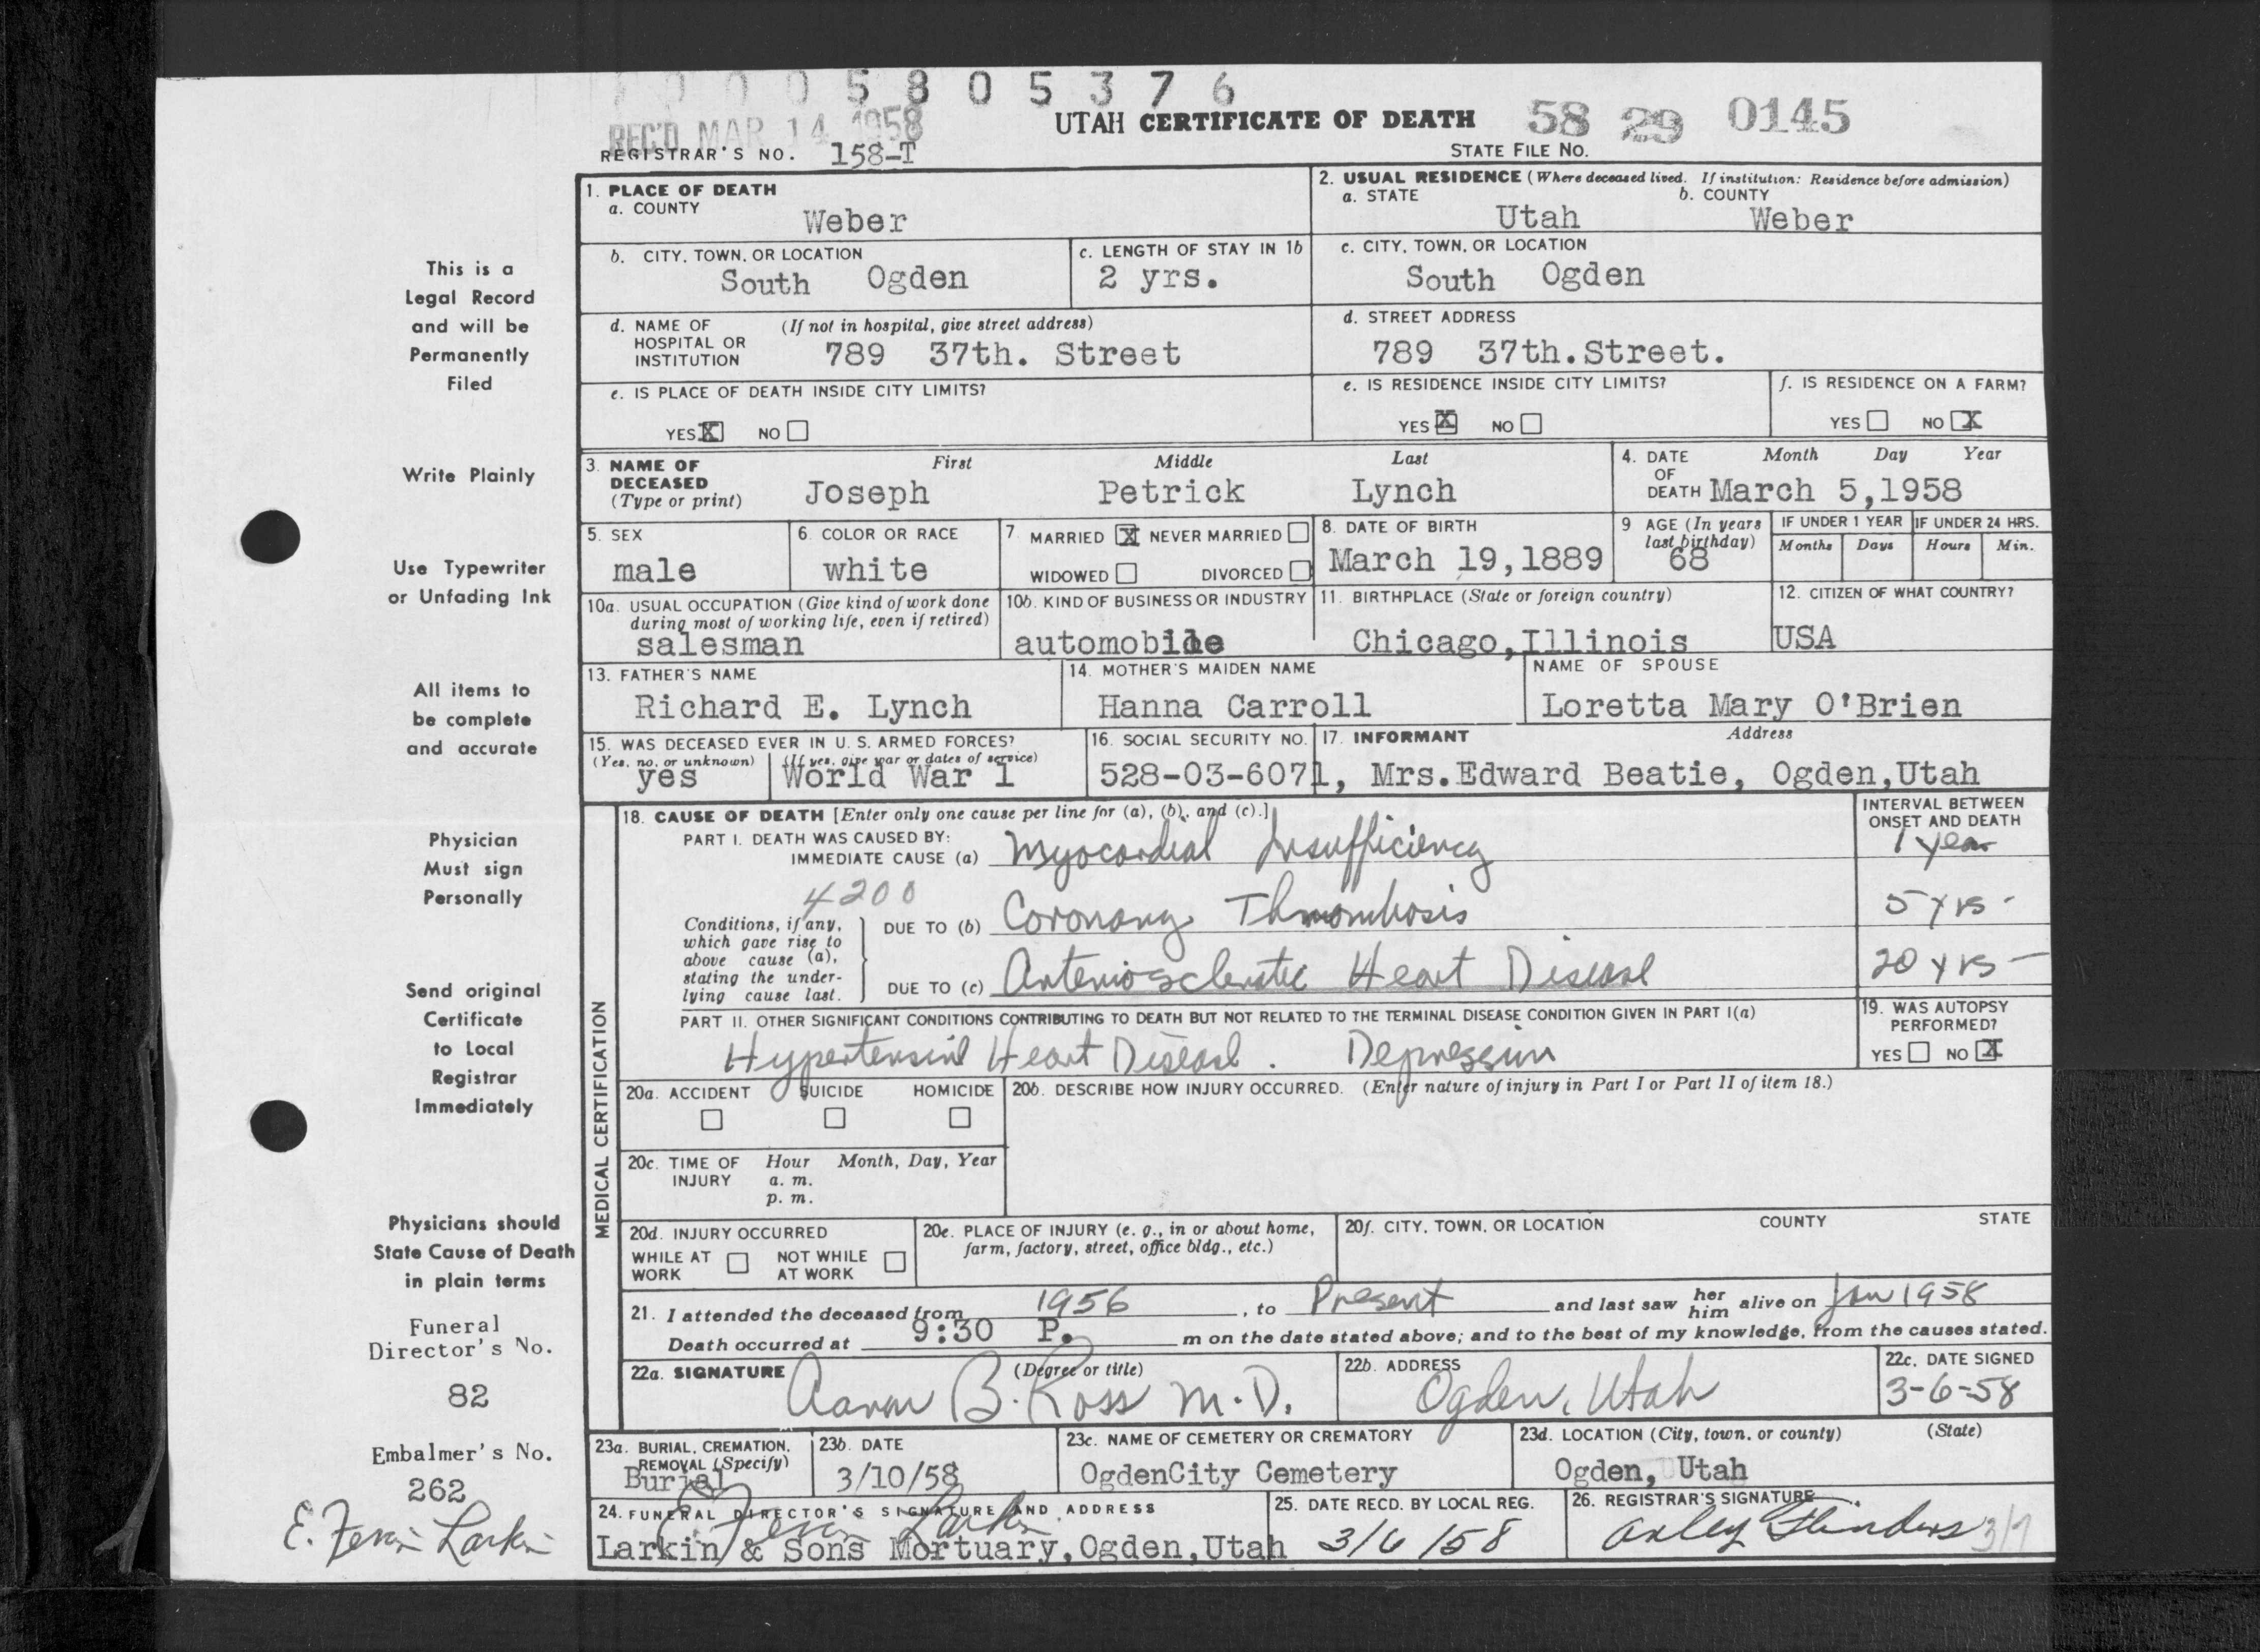 0 0 0 5 8 0 5 3 7 6
REC'D MAR 14 1958
UTAH CERTIFICATE OF DEATH 58 29 0145
REGISTRAR'S NO. 158-T STATE FILE NO.
1. PLACE OF DEATH
a. COUNTY
Weber
2. USUAL RESIDENCE (Where deceased lived. If institution: Residence before admission)
a. STATE b. COUNTY
Utah Weber
b. CITY, TOWN, OR LOCATION
South Ogden
c. LENGTH OF STAY IN 1b
2 yrs.
c. CITY, TOWN, OR LOCATION
South Ogden
d. NAME OF (If not in hospital, give street address)
HOSPITAL OR
INSTITUTION 789 37th. Street
d. STREET ADDRESS
789 37th.Street.
e. IS PLACE OF DEATH INSIDE CITY LIMITS?
YES X NO
e. IS RESIDENCE INSIDE CITY LIMITS?
YES X NO
f. IS RESIDENCE ON A FARM?
YES NO X
3. NAME OF First Middle Last
DECEASED
(Type or print) Joseph Petrick Lynch
4. DATE Month Day Year
OF
DEATH March 5,1958
5. SEX
male
6. COLOR OR RACE
white
7. MARRIED X NEVER MARRIED
WIDOWED DIVORCED
8. DATE OF BIRTH
March 19,1889
9 AGE (In years
last birthday)
68
IF UNDER 1 YEAR IF UNDER 24 HRS.
Months Days Hours Min.
10a. USUAL OCCUPATION (Give kind of work done
during most of working life, even if retired)
salesman
10b. KIND OF BUSINESS OR INDUSTRY
automobile
11. BIRTHPLACE (State or foreign country)
Chicago,Illinois
12. CITIZEN OF WHAT COUNTRY?
USA
13. FATHER'S NAME
Richard E. Lynch
14. MOTHER'S MAIDEN NAME
Hanna Carroll
NAME OF SPOUSE
Loretta Mary O'Brien
15. WAS DECEASED EVER IN U. S. ARMED FORCES?
(Yes, no, or unknown) (If yes, give war or dates of service)
yes World War 1
16. SOCIAL SECURITY NO.
528-03-6071,
17. INFORMANT Address
Mrs.Edward Beatie, Ogden,Utah
MEDICAL CERTIFICATION
18. CAUSE OF DEATH [Enter only one cause per line for (a), (b), and (c).]
INTERVAL BETWEEN
ONSET AND DEATH
PART I. DEATH WAS CAUSED BY:
IMMEDIATE CAUSE (a) Myocardial Insufficiency 1 year
4200
Conditions, if any,
which gave rise to
above cause (a),
stating the under-
lying cause last.
DUE TO (b) Coronary Thrombosis 5 yrs -
DUE TO (c) Arteriosclerotic Heart Disease 20 yrs -
PART II. OTHER SIGNIFICANT CONDITIONS CONTRIBUTING TO DEATH BUT NOT RELATED TO THE TERMINAL DISEASE CONDITION GIVEN IN PART I(a)
Hypertensive Heart Disease. Depression
19. WAS AUTOPSY
PERFORMED?
YES NO X
20a. ACCIDENT SUICIDE HOMICIDE
20b. DESCRIBE HOW INJURY OCCURRED. (Enter nature of injury in Part I or Part II of item 18.)
20c. TIME OF Hour Month, Day, Year
INJURY a. m.
p. m.
20d. INJURY OCCURRED
WHILE AT NOT WHILE
WORK AT WORK
20e. PLACE OF INJURY (e. g., in or about home,
farm, factory, street, office bldg., etc.)
20f. CITY, TOWN, OR LOCATION COUNTY STATE
21. I attended the deceased from 1956, to Present and last saw her him alive on Jan 1958
Death occurred at 9:30 P. m on the date stated above; and to the best of my knowledge, from the causes stated.
22a. SIGNATURE (Degree or title)
Aaron B. Ross M.D.
22b. ADDRESS
Ogden, Utah
22c. DATE SIGNED
3-6-58
23a. BURIAL, CREMATION,
REMOVAL (Specify)
Burial
23b. DATE
3/10/58
23c. NAME OF CEMETERY OR CREMATORY
OgdenCity Cemetery
23d. LOCATION (City, town, or county) (State)
Ogden, Utah
24. FUNERAL DIRECTOR'S SIGNATURE AND ADDRESS
Larkin
Larkin & Sons Mortuary,Ogden,Utah
25. DATE RECD. BY LOCAL REG.
3/6/58
26. REGISTRAR'S SIGNATURE
Flinders
This is a
Legal Record
and will be
Permanently
Filed
Write Plainly
Use Typewriter
or Unfading Ink
All items to
be complete
and accurate
Physician
Must sign
Personally
Send original
Certificate
to Local
Registrar
Immediately
Physicians should
State Cause of Death
in plain terms
Funeral
Director's No.
82
Embalmer's No.
262
E. Larkin